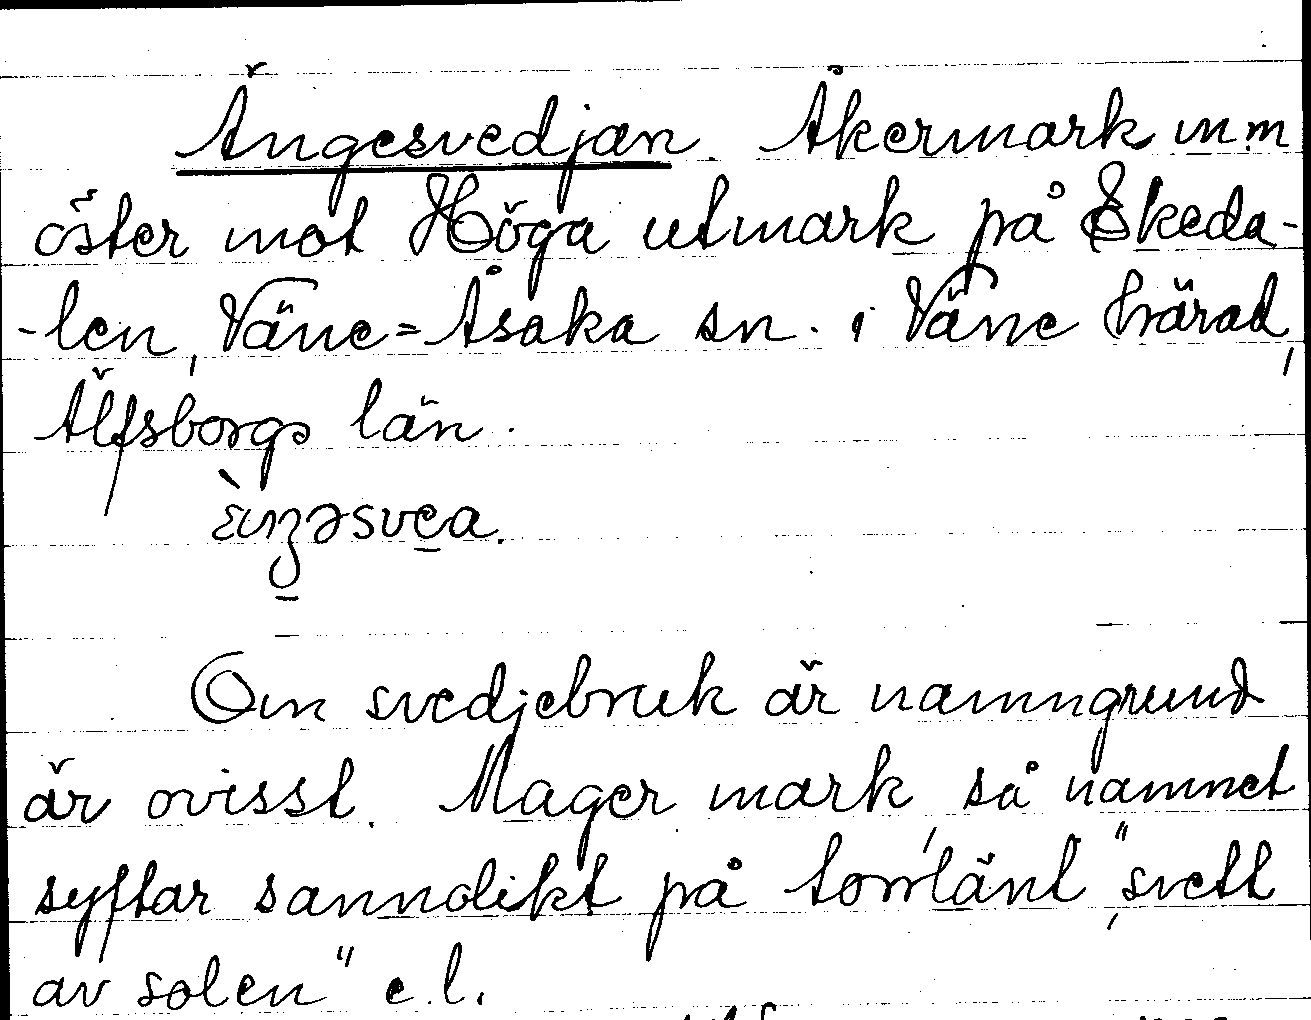 Ängesvedjan. Åkermark m.m
öster mot Höga utmark på Skeda-
-len, Väne=Åsaka sn. i Väne härad,
Älfsborgs län.
Om svedjebruk är namngrund
är ovisst. Mager mark, så namnet
syftar sannolikt på torrlänt, "svett
av solen" e.l.